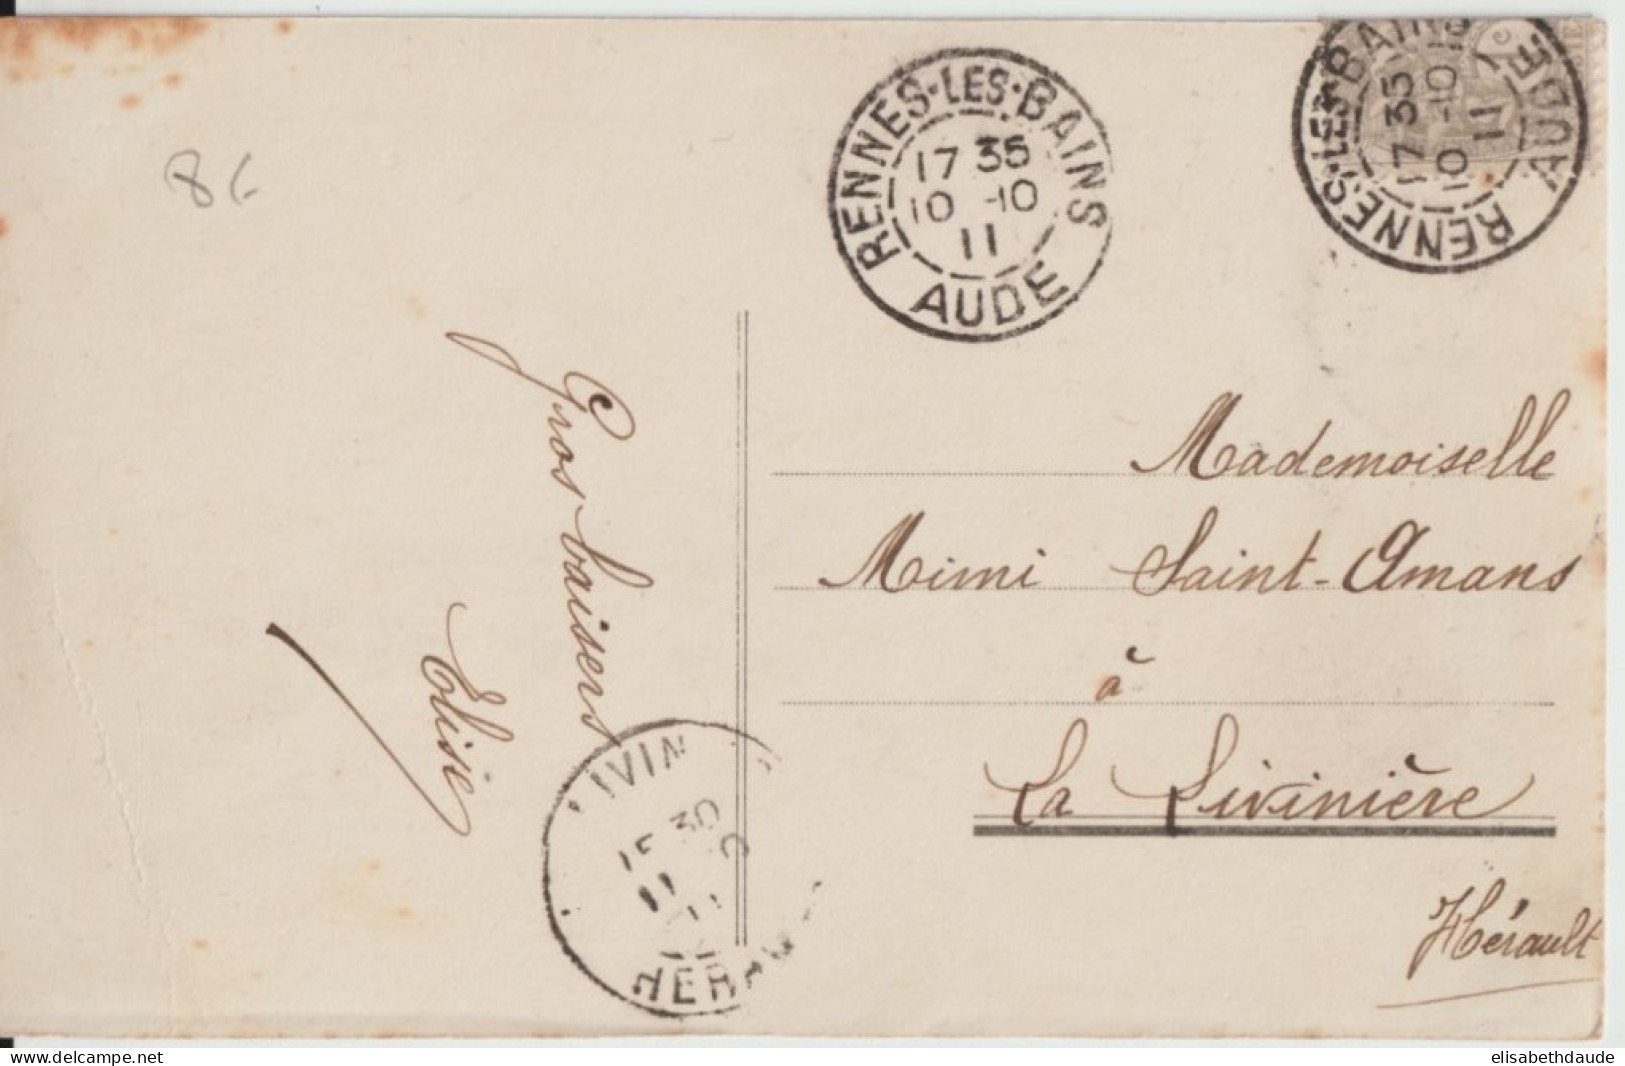 RENNES-LES-BAINS
17 35
10 -10
11
AUDE
RENNES-LES-BAINS
17 35
10 -10
11
AUDE
8€
Gros baisers
Elise
Mademoiselle
Mimi Saint-Amans
à
La Livinière
Hérault
IVIN
30
HERAU
www.delcampe.net
elisabethdaude